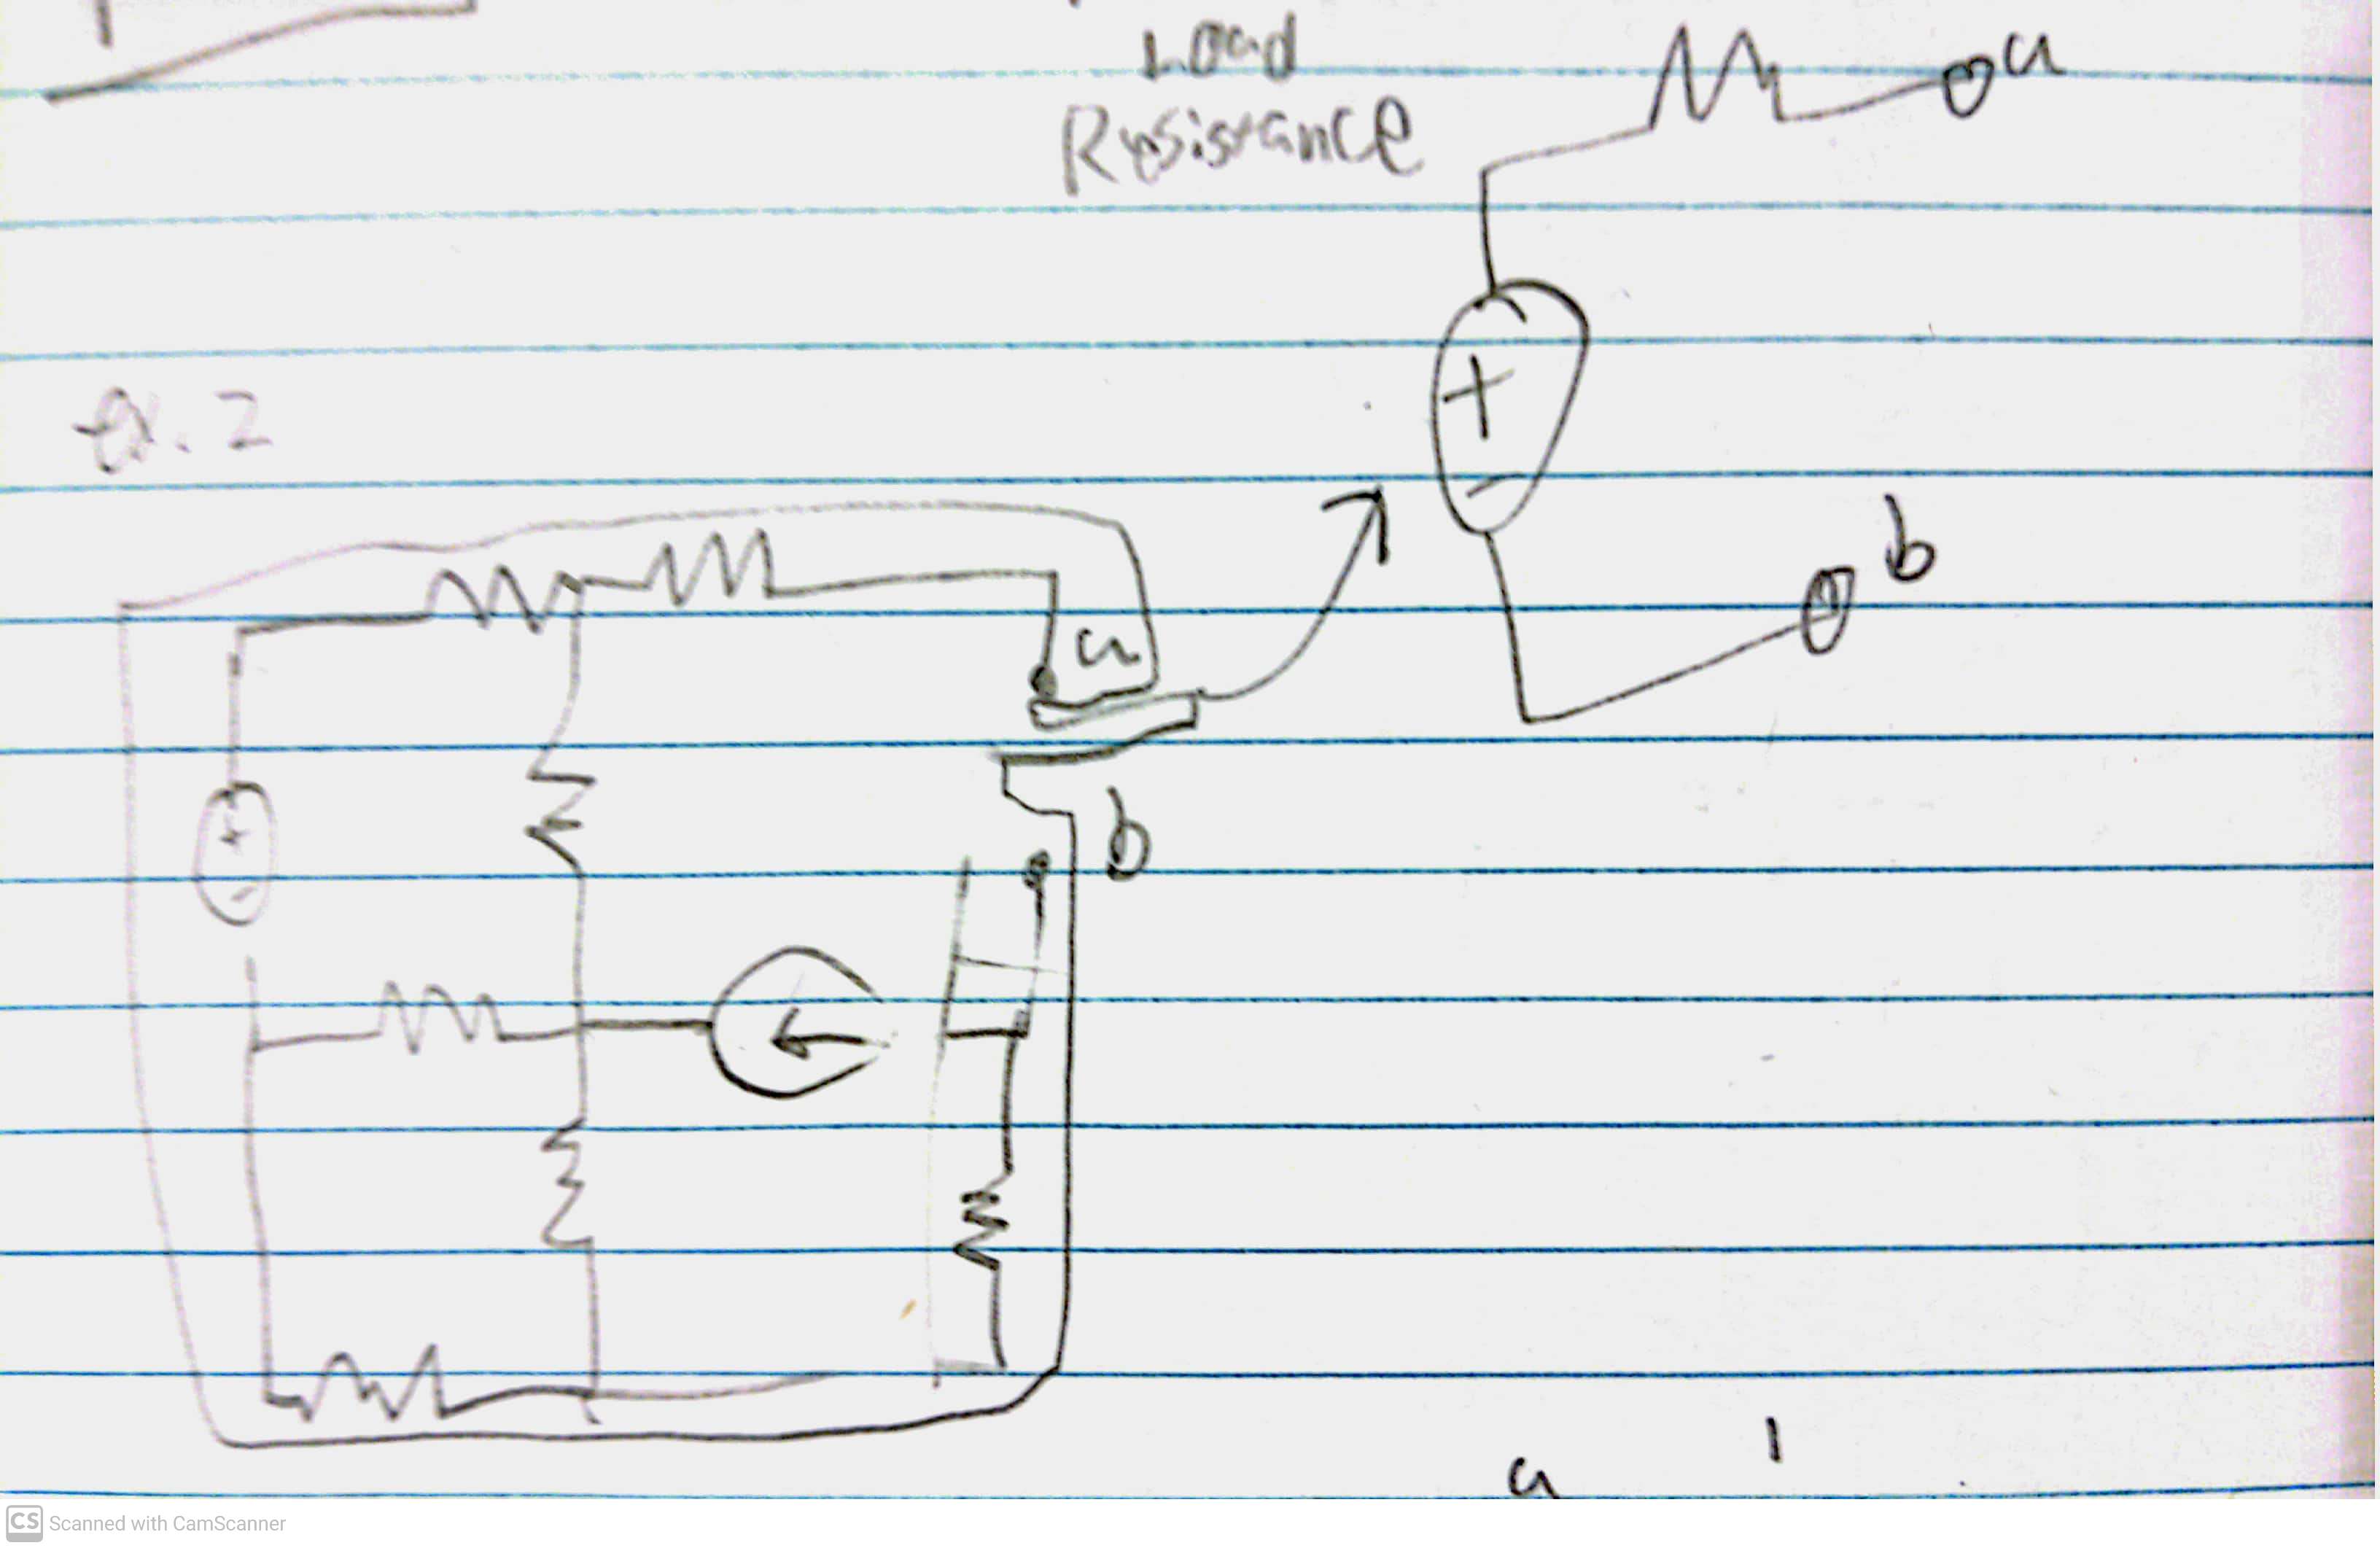 Load
Resistance
a
+
-
b
ex. 2
a
+
-
b
a
CS Scanned with CamScanner